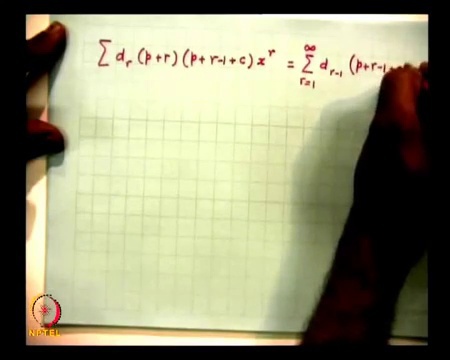 ∑ d_r (p+r) (p+r-1+c) x^r = ∑_{r=1}^{∞} d_{r-1} (p+r-1
NPTEL